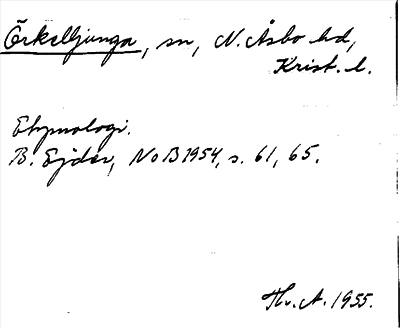 Örkelljunga, sn, N. Åsbo hd,
Krist. l.
Etymologi.
B. Ejder, NoB 1954, s. 61, 65.
Hv. A. 1955.